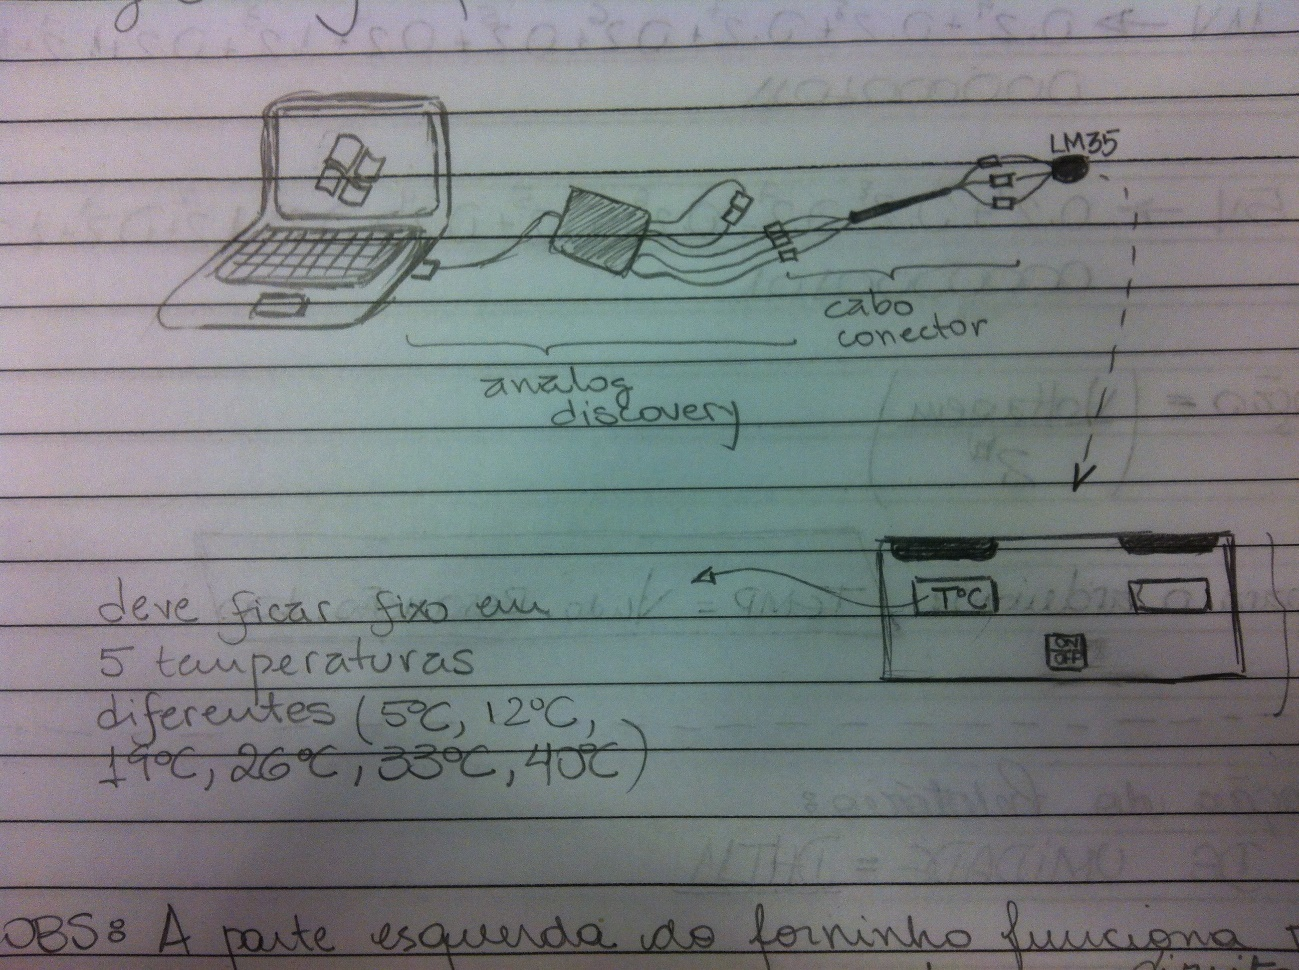 LM35
cabo
conector
analog
discovery
T°C
ON
OFF
deve ficar fixo em
5 temperaturas
diferentes (5°C, 12°C,
19°C, 26°C, 33°C, 40°C)
OBS: A parte esquerda do forninho funciona